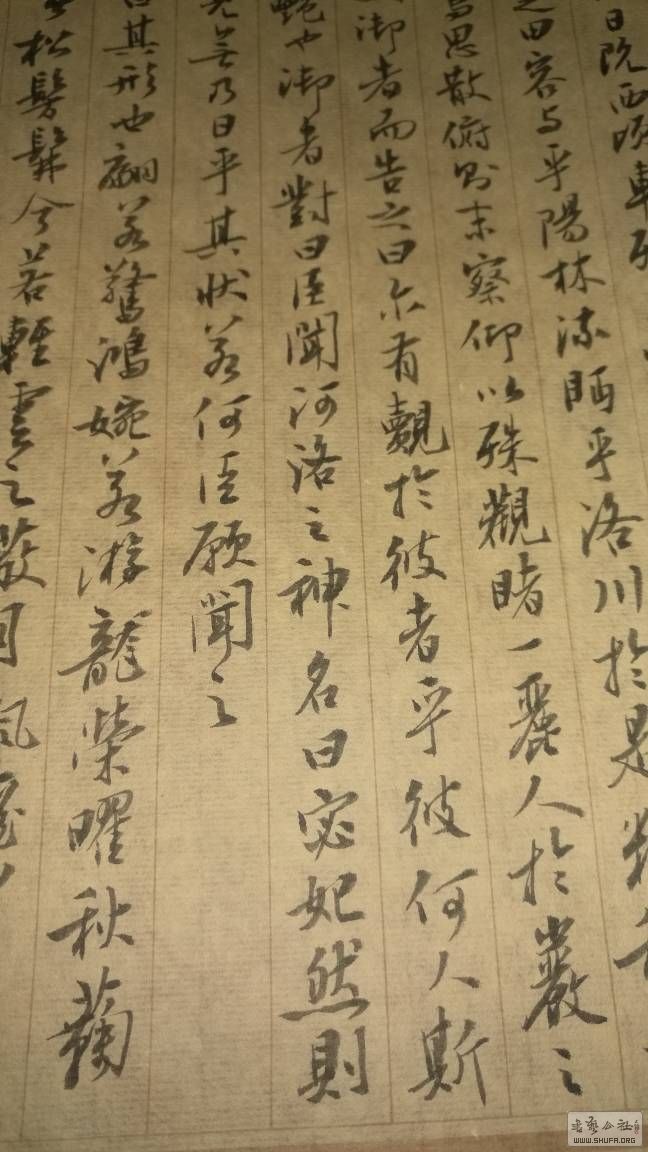 日既西頃車殆
之田容与乎陽林流眄乎洛川於是
焉思散俯則未察仰以殊觀睹一麗人於巖之
御者而告之曰尔有覿於彼者乎彼何人斯
艷也御者對曰臣聞河洛之神名曰宓妃然則
見無乃日乎其状若何臣願聞之
曰其形也翩若驚鴻婉若游龍榮曜秋菊
松髣髴兮若輕雲之蔽月
書藝公社
WWW.SHUFA.ORG